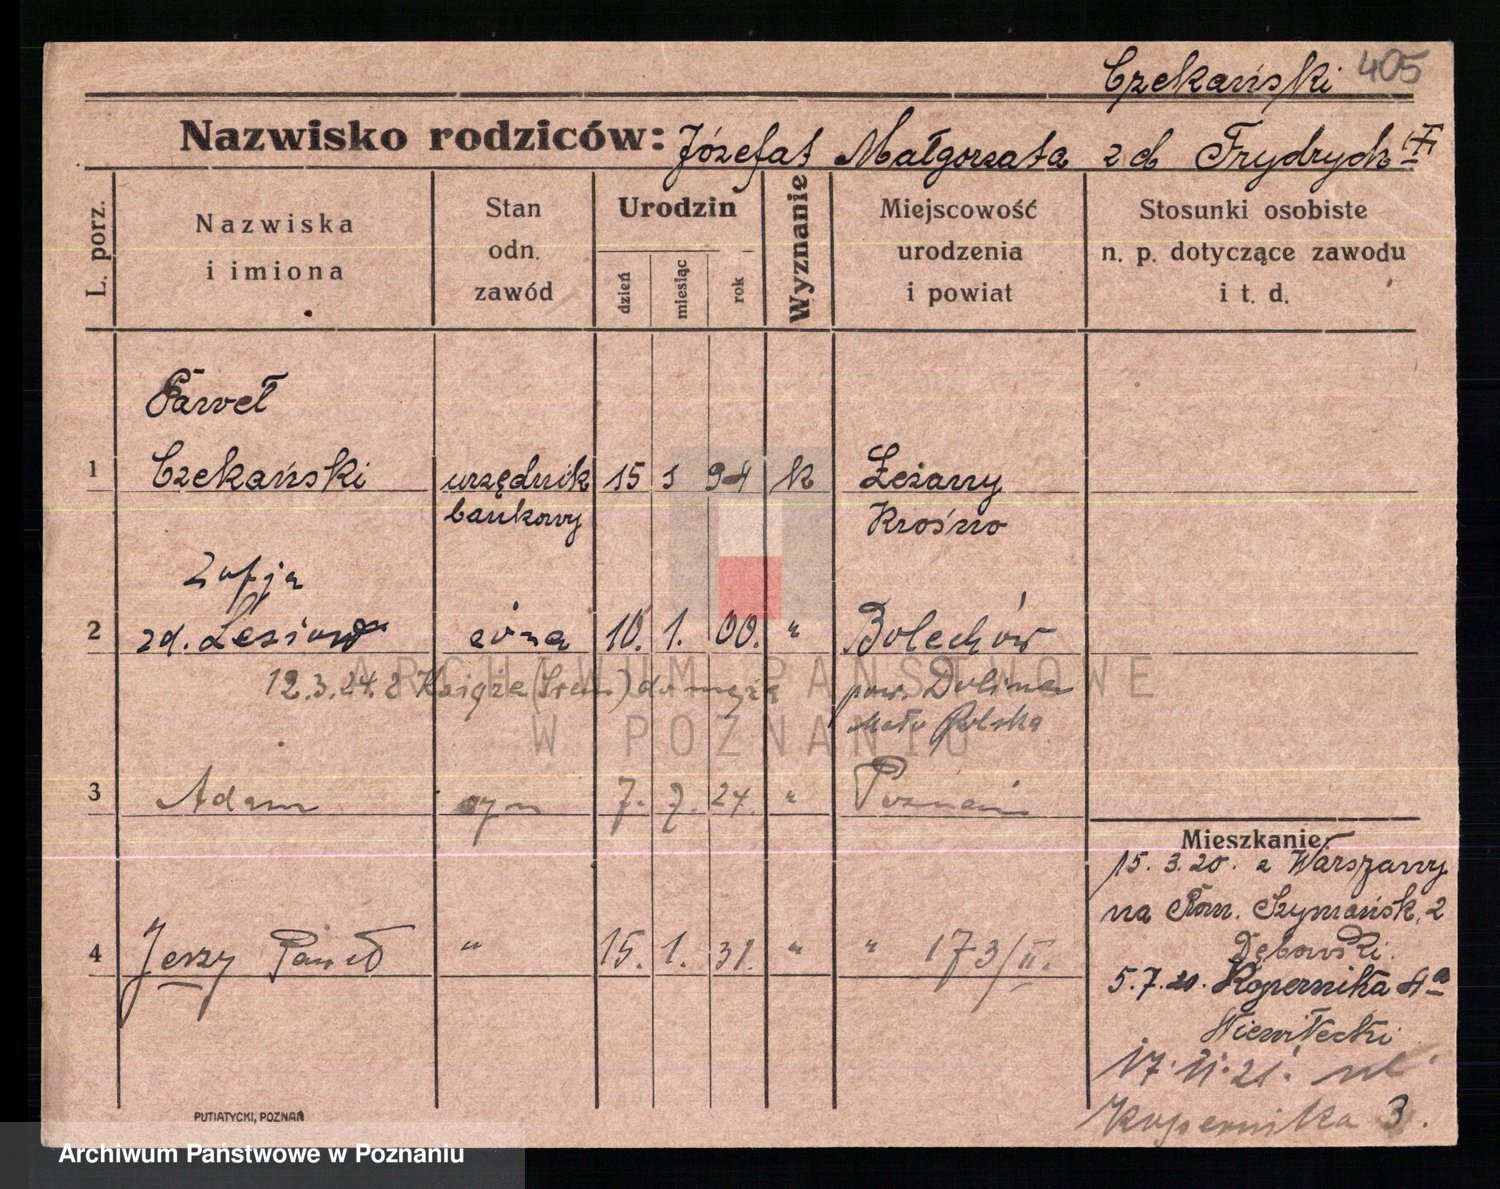 Czekański 405
Nazwisko rodziców: Józefat Małgorzata zd Frydrych
L. porz.
Nazwiska
i imiona
Stan
odn.
zawód
Urodzin
dzień
miesiąc
rok
Wyznanie
Miejscowość
urodzenia
i powiat
Stosunki osobiste
n. p. dotyczące zawodu
i t. d.
Paweł
1 Czekański urzędnik 15 1 94 k Leżany
bankowy Krosno
Zofja
2 zd. żona 10. 1. 00. " Bolechów
12.3.24. z Książa (Śrem) do męża pow. Dolina
Mało Polska
3 Adam syn 7. 7. 24. " Poznań
Mieszkanie:
15. 3. 20. z Warszawy
na Rom. Szymańsk. 2
Dębowski.
4 Jerzy Paweł " 15. 1. 31. " " 173/II.
5. 7. 20. Kopernika 4a
Niewitecki
17. 11. 21. ul.
Kopernika 3.
PUTIATYCKI, POZNAŃ
ARCHIWUM PAŃSTWOWE
W POZNANIU
Archiwum Państwowe w Poznaniu